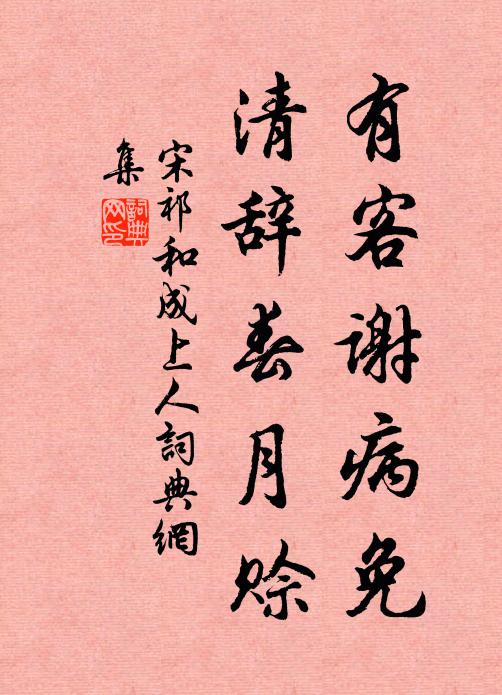 有客谢病免
清辞春月赊
宋祁和成上人詞典網
集
詞典
网印